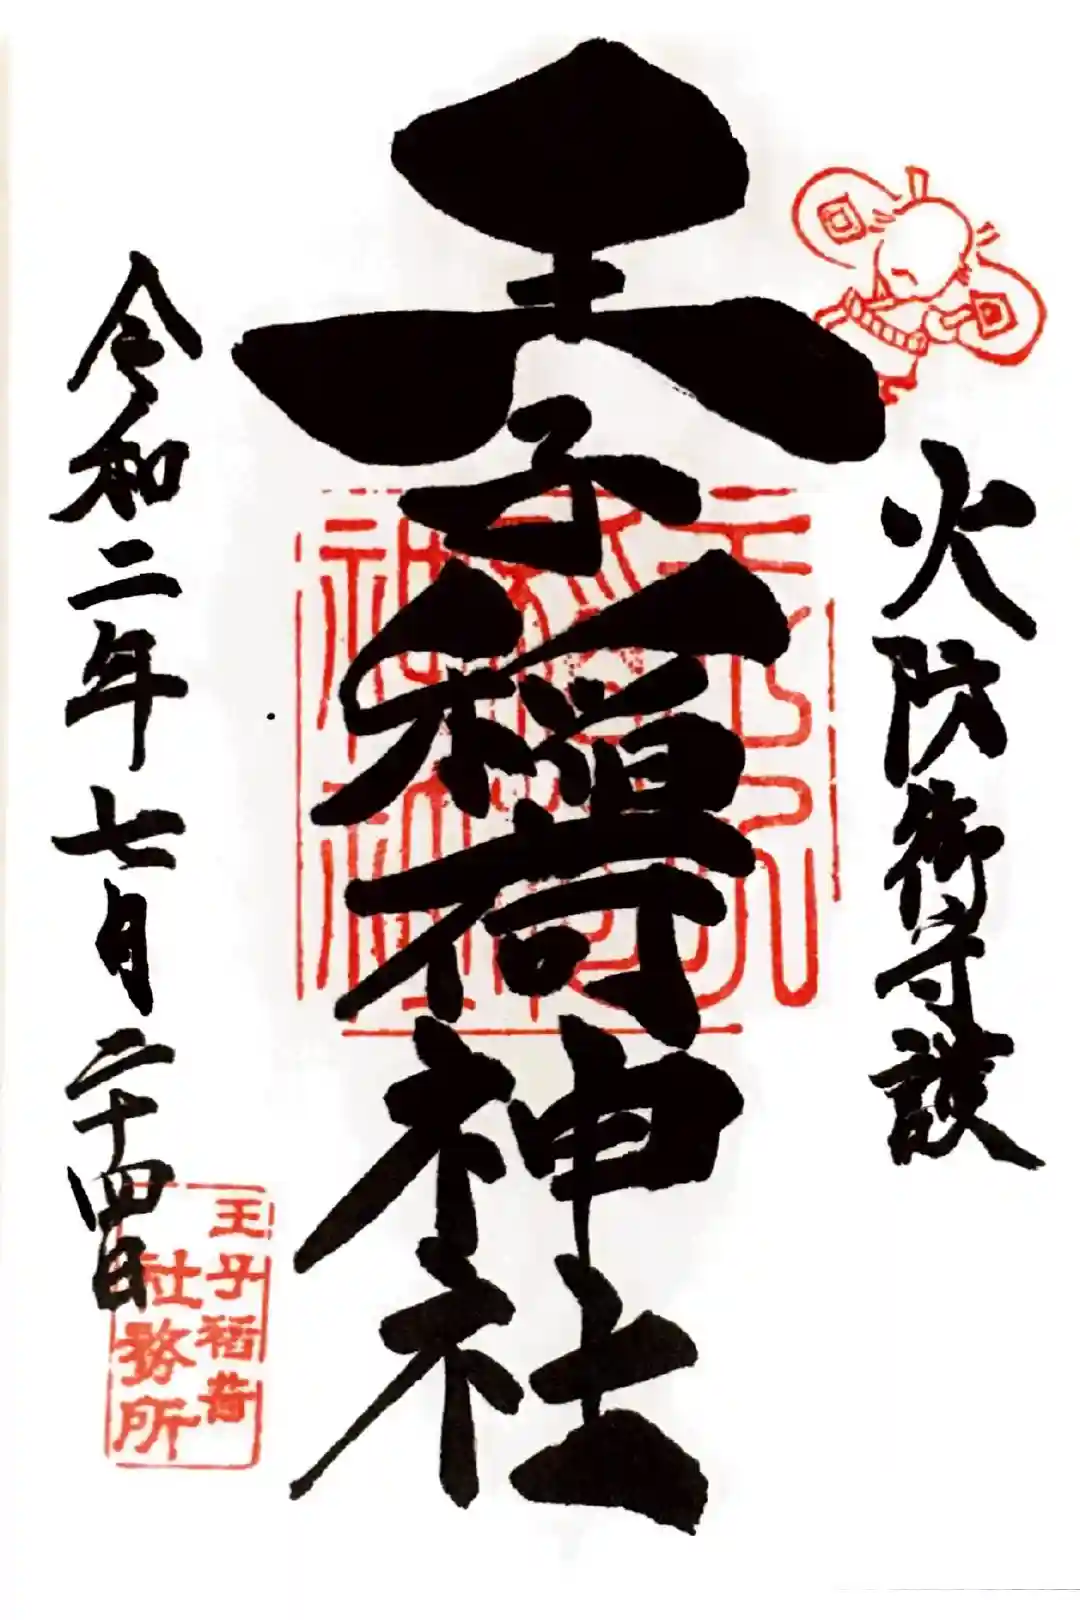 火防御守護
王子稲荷神社
令和二年七月二十四日
王子稲荷
社務所